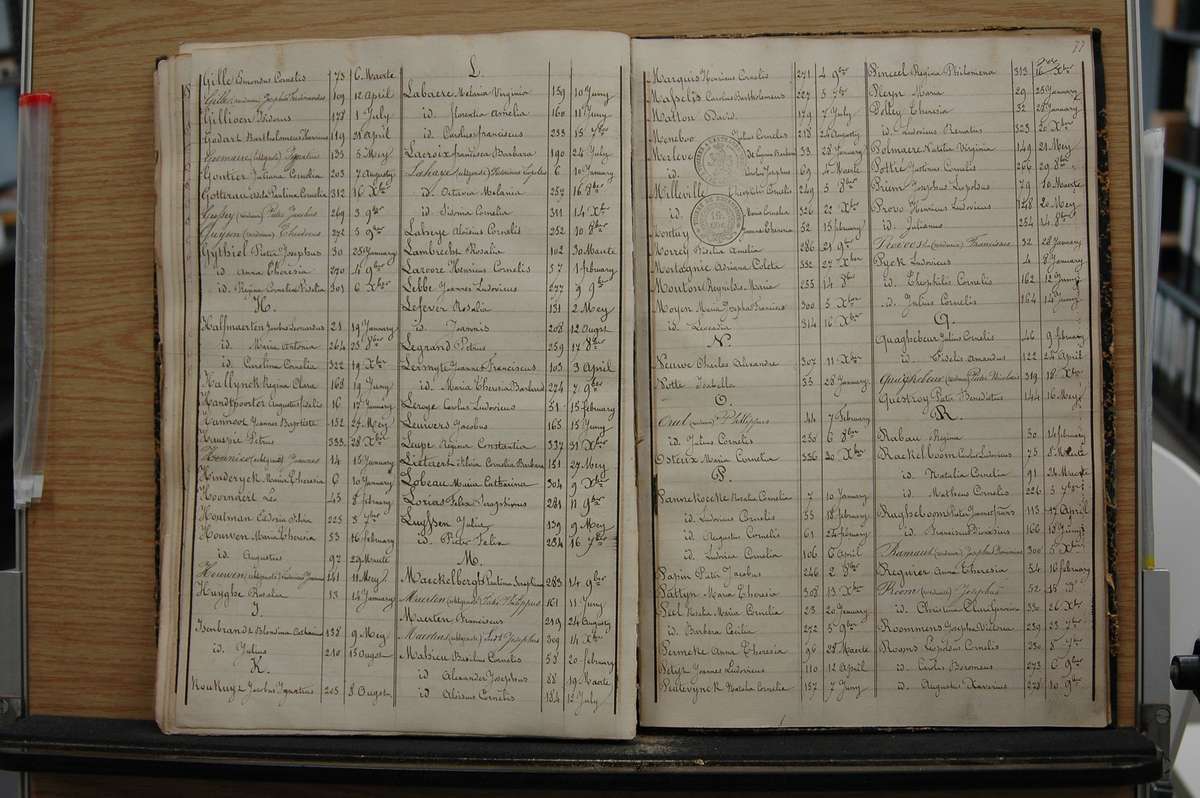 Gille Edmondus Cornelis 73 6 Maerte
Gille Josephus Ferdinandus 109 12 April
Gillioen Isidorus 178 1 July
Godart Bartholomeus 119 21 April
Gomaere Ignatius 135 5 Mey
Gontier Juliana Cornelia 203 7 Augusty
Gotteau Leuta Paulina Cornelia 312 16 Xber
Pieter Jacobus 269 3 9ber
Guysen Theodorus 272 5 9ber
Gythiel Pieter Josephus 30 25 January
id. Anna Theresia 270 4 9ber
id. Regina Cornelia Rosalia 301 6 Xber
H.
Halfmaerten Leonardus 21 19 January
id. Maria Antonia 264 25 8ber
id. Carolina Cornelia 322 19 Xber
Hallynck Regina Clara 168 19 Juny
Handtpoorter Augustus Fidelis 16 17 January
Hannoot Joannes Baptiste 152 24 Mey
Hauspie Petrus 333 28 Xber
Hennico Joannes 14 15 January
Hinderyck Maria Theresia 6 10 January
Hoornaert Leo 43 8 february
Houtman Ludovia Silvia 225 3 7ber
Houwen Maria Theresia 53 16 february
id. Augustus 97 29 Maerte
Houwen 141 11 Mey
Huyghe Rosalia 13 14 January
I.
Isenbrandt Blondina Catharina 138 9 Mey
id. Julius 210 15 Ougst
K.
Koukuyt Jacobus Ignatius 205 8 Ougsten
L.
Labaere Melania Virginia 159 10 Juny
id. Florentia Amelia 160 11 Juny
id. Carolus franciscus 233 15 7ber
Lacroix francisca Barbara 190 24 July
Lahaye 6 10 January
id. Octavia Melania 257 16 8ber
id. Sidonia Cornelia 311 14 Xber
Labreye Aloisius Cornelis 252 10 8ber
Lambrecht Rosalia 102 30 Maerte
Lavoore Henricus Cornelis 37 1 february
Lebbe Joannes Ludovicus 277 9 9ber
Lefever Rosalia 131 2 Mey
id. Joannis 208 12 Augst
Legrand Petrus 259 17 8ber
Lernyte Joannes Franciscus 103 3 April
id. Maria Theresia Barbara 274 7 9ber
Leroye Carolus Ludovicus 51 15 february
Leuwers Jacobus 165 15 Juny
Leupe Regina Constantia 337 31 Xber
Lietaert Silvia Cornelia Barbara 151 27 Mey
Lobeau Maria Catharina 304 9 Xber
Lorias Felix Seraphinus 281 11 9ber
Luyssen Julia 139 9 Mey
id. Pieter Felix 234 16 7ber
M.
Maeckelbergh Paulina Josephina 283 14 9ber
Maerten Philippus 161 11 Juny
Maerten Franciscus 219 24 Augusty
Maertens Josephus 309 14 Xber
Mahieu Basilius Cornelis 58 20 february
id. Alexander Josephus 88 19 Maerte
id. Aloisius Cornelis 184 12 July
77
Marquis Henricus Cornelis 271 4 9ber
Maselis Carolus Bartholomeus 227 5 7ber
Matton David 179 7 July
Meneboo Julius Cornelis 218 24 Augusty
Merlevede Eugenia Barbara 33 28 January
id. Carolus Josephus 69 4 Maerte
Milleville Cornelis 249 5 8ber
id. Maria Cornelia 326 22 Xber
Monteny Joannes Theresia 52 15 february
Morel Rosalia Amelia 286 21 9ber
Mortagnie Adriana Coleta 332 27 Xber
Mouton Reynildis Maria 255 14 8ber
Moyen Maria Josepha Francisca 300 5 Xber
id. Leocadia 314 16 Xber
N.
Neuwe Charles Alexandre 307 11 Xber
Notte Isabella 35 28 January
O.
Oreel Philippus 44 7 February
id. Julius Cornelis 250 6 8ber
Osteux Maria Cornelia 336 30 Xber
P.
Pannekoecke Rosalia Cornelia 7 10 January
id. Ludovicus Cornelis 55 18 february
id. Augustus Cornelis 61 24 february
id. Ludovica Cornelia 106 6 April
Papin Pieter Jacobus 246 2 8ber
Pattyn Maria Theresia 308 13 Xber
Piel Rosalia Maria Cornelia 23 20 January
id. Barbera Cecilia 272 5 9ber
Perneke Anna Theresia 96 28 Maerte
Petyt Joannes Ludovicus 110 12 April
Peutevynck Natalia Cornelia 157 7 Juny
Pinceel Regina Philomena 313 16 Xber
Pleyn Maria 29 25 January
Polley Theresia 32 28 January
id. Ludovicus Renatus 323 20 Xber
Polmaire Natalia Virginia 149 21 Mey
Pottie Gustavus Cornelis 266 29 8ber
Priem Josephus Leopoldus 79 10 Maerte
Provo Henricus Ludovicus 148 20 Mey
id. Julianus 254 14 8ber
Franciscus 32 28 January
Puck Ludovicus 4 8 January
id. Theophilis Cornelis 162 12 Juny
id. Julius Cornelis 164 14 Juny
Q.
Quaghebeur Julius Cornelis 46 9 february
id. Fidelis Amandus 122 24 April
Quaghebeur Pieter Nicolaus 319 18 Xber
Questroy Pieter Benedictus 144 16 Mey
R.
Rabau Regina 50 14 february
Rackelboom Carolus Ludovicus 75 8 Maerte
id. Natalia Cornelia 91 24 Maerte
id. Matheus Cornelis 226 5 7ber
Raghseboom Pieter Joannes 113 17 April
id. Franciscus 166 18 Juny
Ramaut Josephus 300 5 Xber
Regvier Anna Theresia 54 16 february
Room Josephus 52 15 id.
id. Christina Clemelpraxia 330 26 Xber
Roommens Josephus Victoria 239 23 7ber
Rooms Leopoldus Cornelis 230 8 7ber
id. Carolus Boromeus 273 6 9ber
id. Auguste Xaverius 278 10 9ber